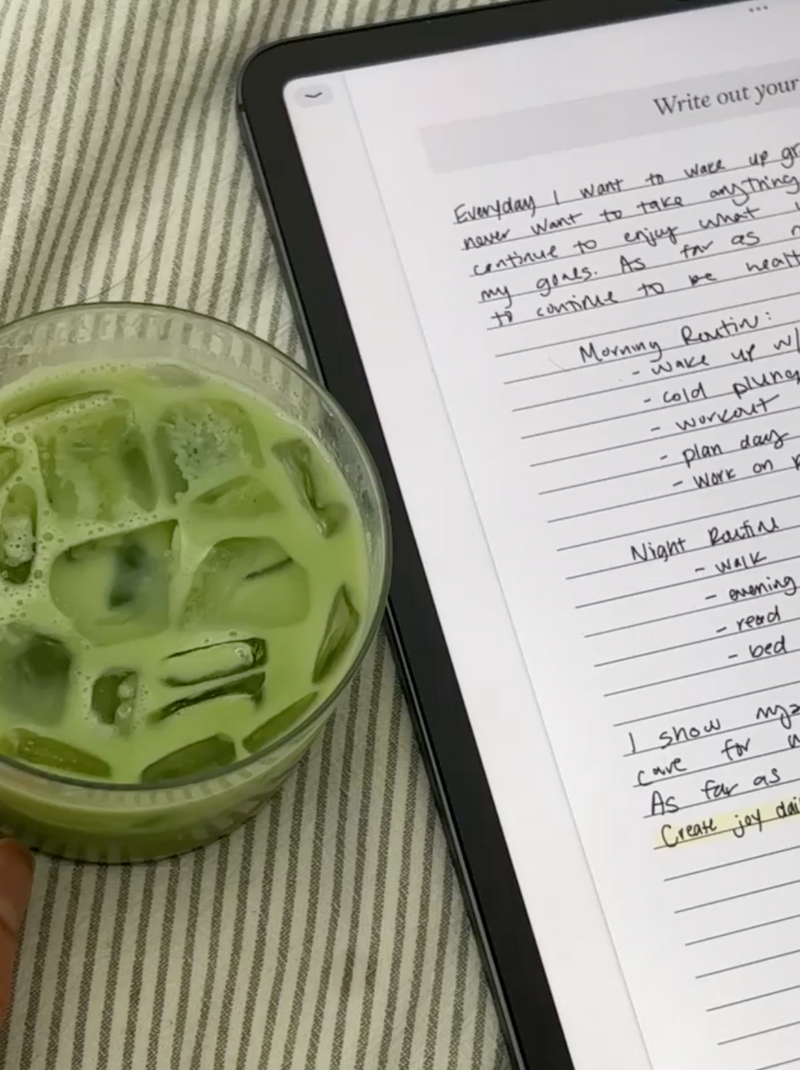 Write out your
Everyday I want to wake up gr
never want to take anything
continue to enjoy what
my goals. As far as
to continue to be healt
Morning Routin:
- wake up w/
- cold plung
- workout
- plan day
- work on
Night Routine
- walk
- evening
- read
- bed
I show my
care for w
As far as
Create joy dai